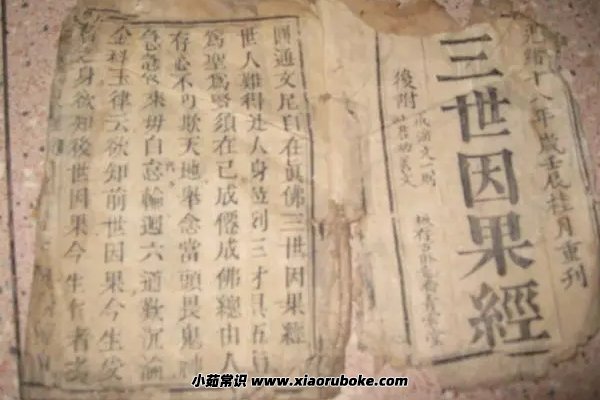 光緒十八年歲壬辰桂月重刊
三世因果經
後附
戒淫文
板存
文尼自在眞佛三世因果經
世人難得人身並列三才具五
爲聖爲賢須在己成僊成佛總由人
存心不可欺天地舉念當頭畏鬼神
急急來毋自怠輪迴六道歎沉淪
金科玉律云欲知前世因果今生受
者身欲知後世因果今生作者
小茹常识 www.xiaoruboke.com